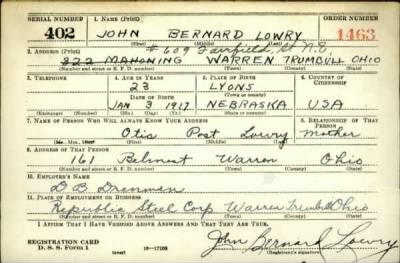 SERIAL NUMBER 1. NAME (Print) ORDER NUMBER
402 JOHN BERNARD LOWRY 1463
(First) (Middle) (Last)
#609 Fairfield St N.E.
2. ADDRESS (Print)
322 MAHONING WARREN TRUMBULL OHIO
(Number and street or R. F. D. number) (Town) (County) (State)
3. TELEPHONE 4. AGE IN YEARS 5. PLACE OF BIRTH 6. COUNTRY OF CITIZENSHIP
23 LYONS
DATE OF BIRTH (Town or county)
JAN 3 1917 NEBRASKA USA
(Exchange) (Number) (Mo.) (Day) (Yr.) (State or country)
7. NAME OF PERSON WHO WILL ALWAYS KNOW YOUR ADDRESS 8. RELATIONSHIP OF THAT PERSON
Otis Post Lowry mother
(Mr., Mrs., Miss) (First) (Middle) (Last)
9. ADDRESS OF THAT PERSON
161 Belmont Warren Ohio
(Number and street or R. F. D. number) (Town) (County) (State)
10. EMPLOYER'S NAME
D B Drennen
11. PLACE OF EMPLOYMENT OR BUSINESS
Republic Steel Corp Warren Trumbull Ohio
(Number and street or R. F. D. number) (Town) (County) (State)
I AFFIRM THAT I HAVE VERIFIED ABOVE ANSWERS AND THAT THEY ARE TRUE.
REGISTRATION CARD
D. S. S. Form 1 (over) 16—17105 John Bernard Lowry
(Registrant's signature)